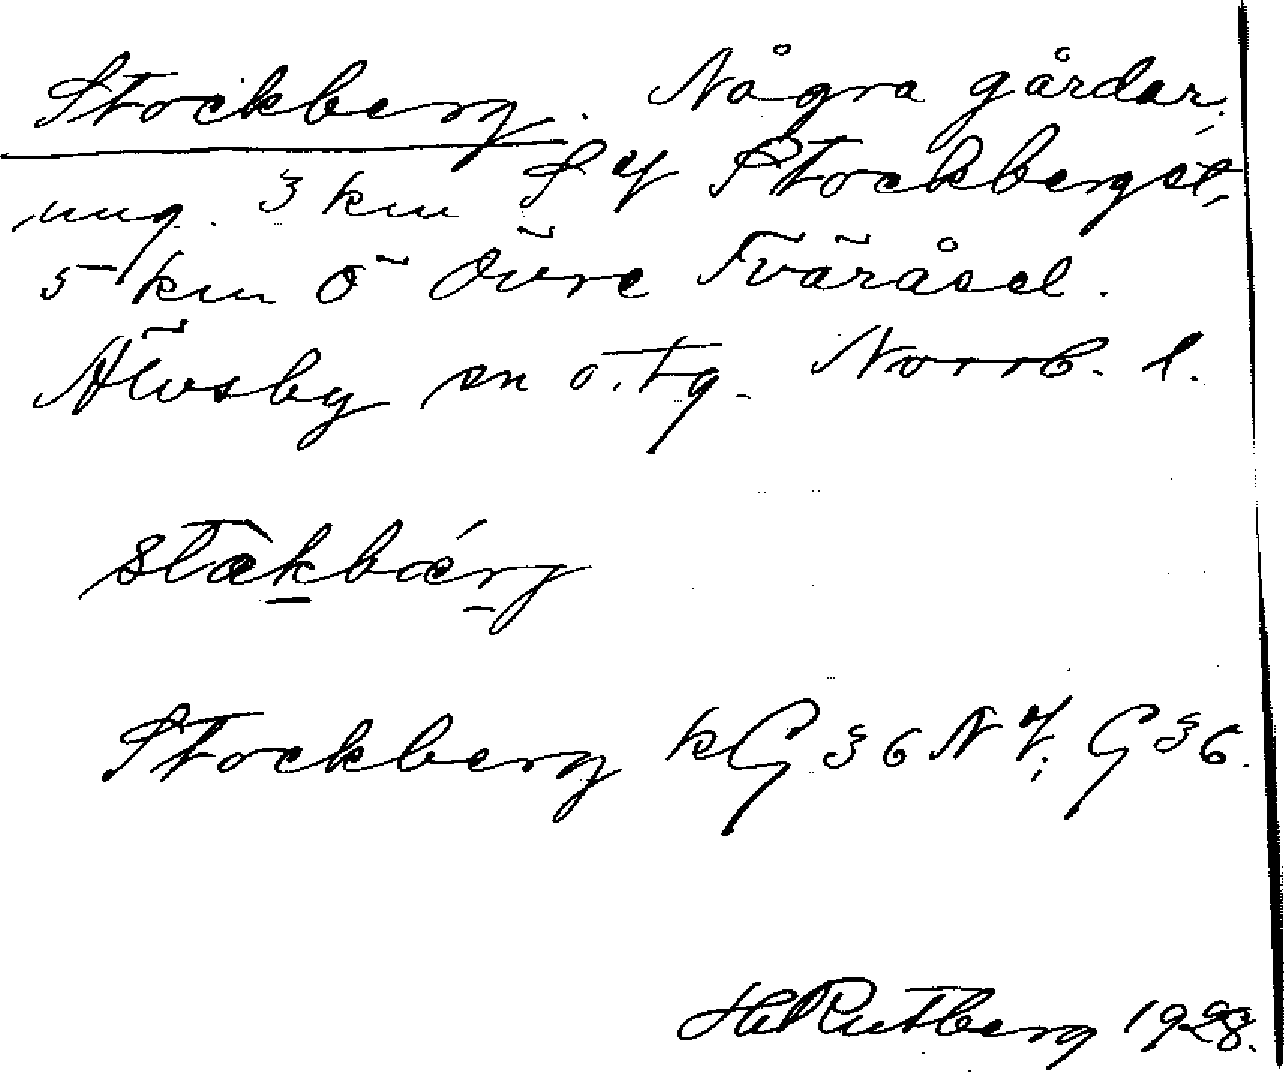 Stockberg. Några gårdar.
ung. 3 km S Stockbergst,
5 km Ö Övre Tväråsel.
Älvsby sn o. tg. Norrb. l.
stækbærg
Stockberg kG 36 NV; G 36.
H Rutberg 1928.